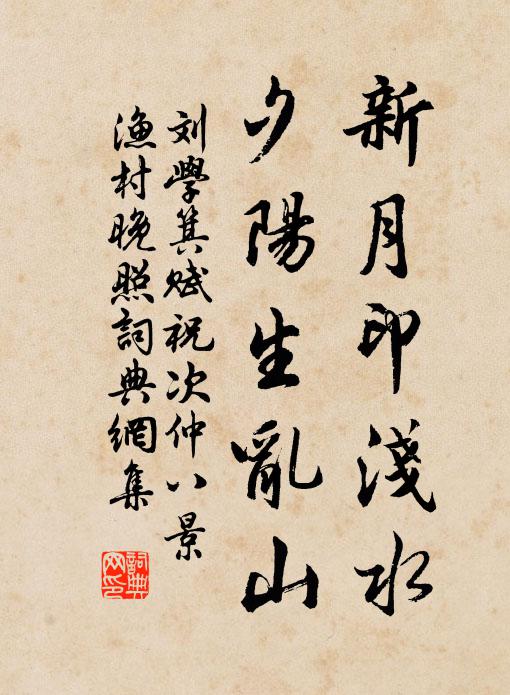 新月印淺水
夕陽生亂山
刘學箕赋祝次仲八景
漁村晚照詞典網集
詞典网印